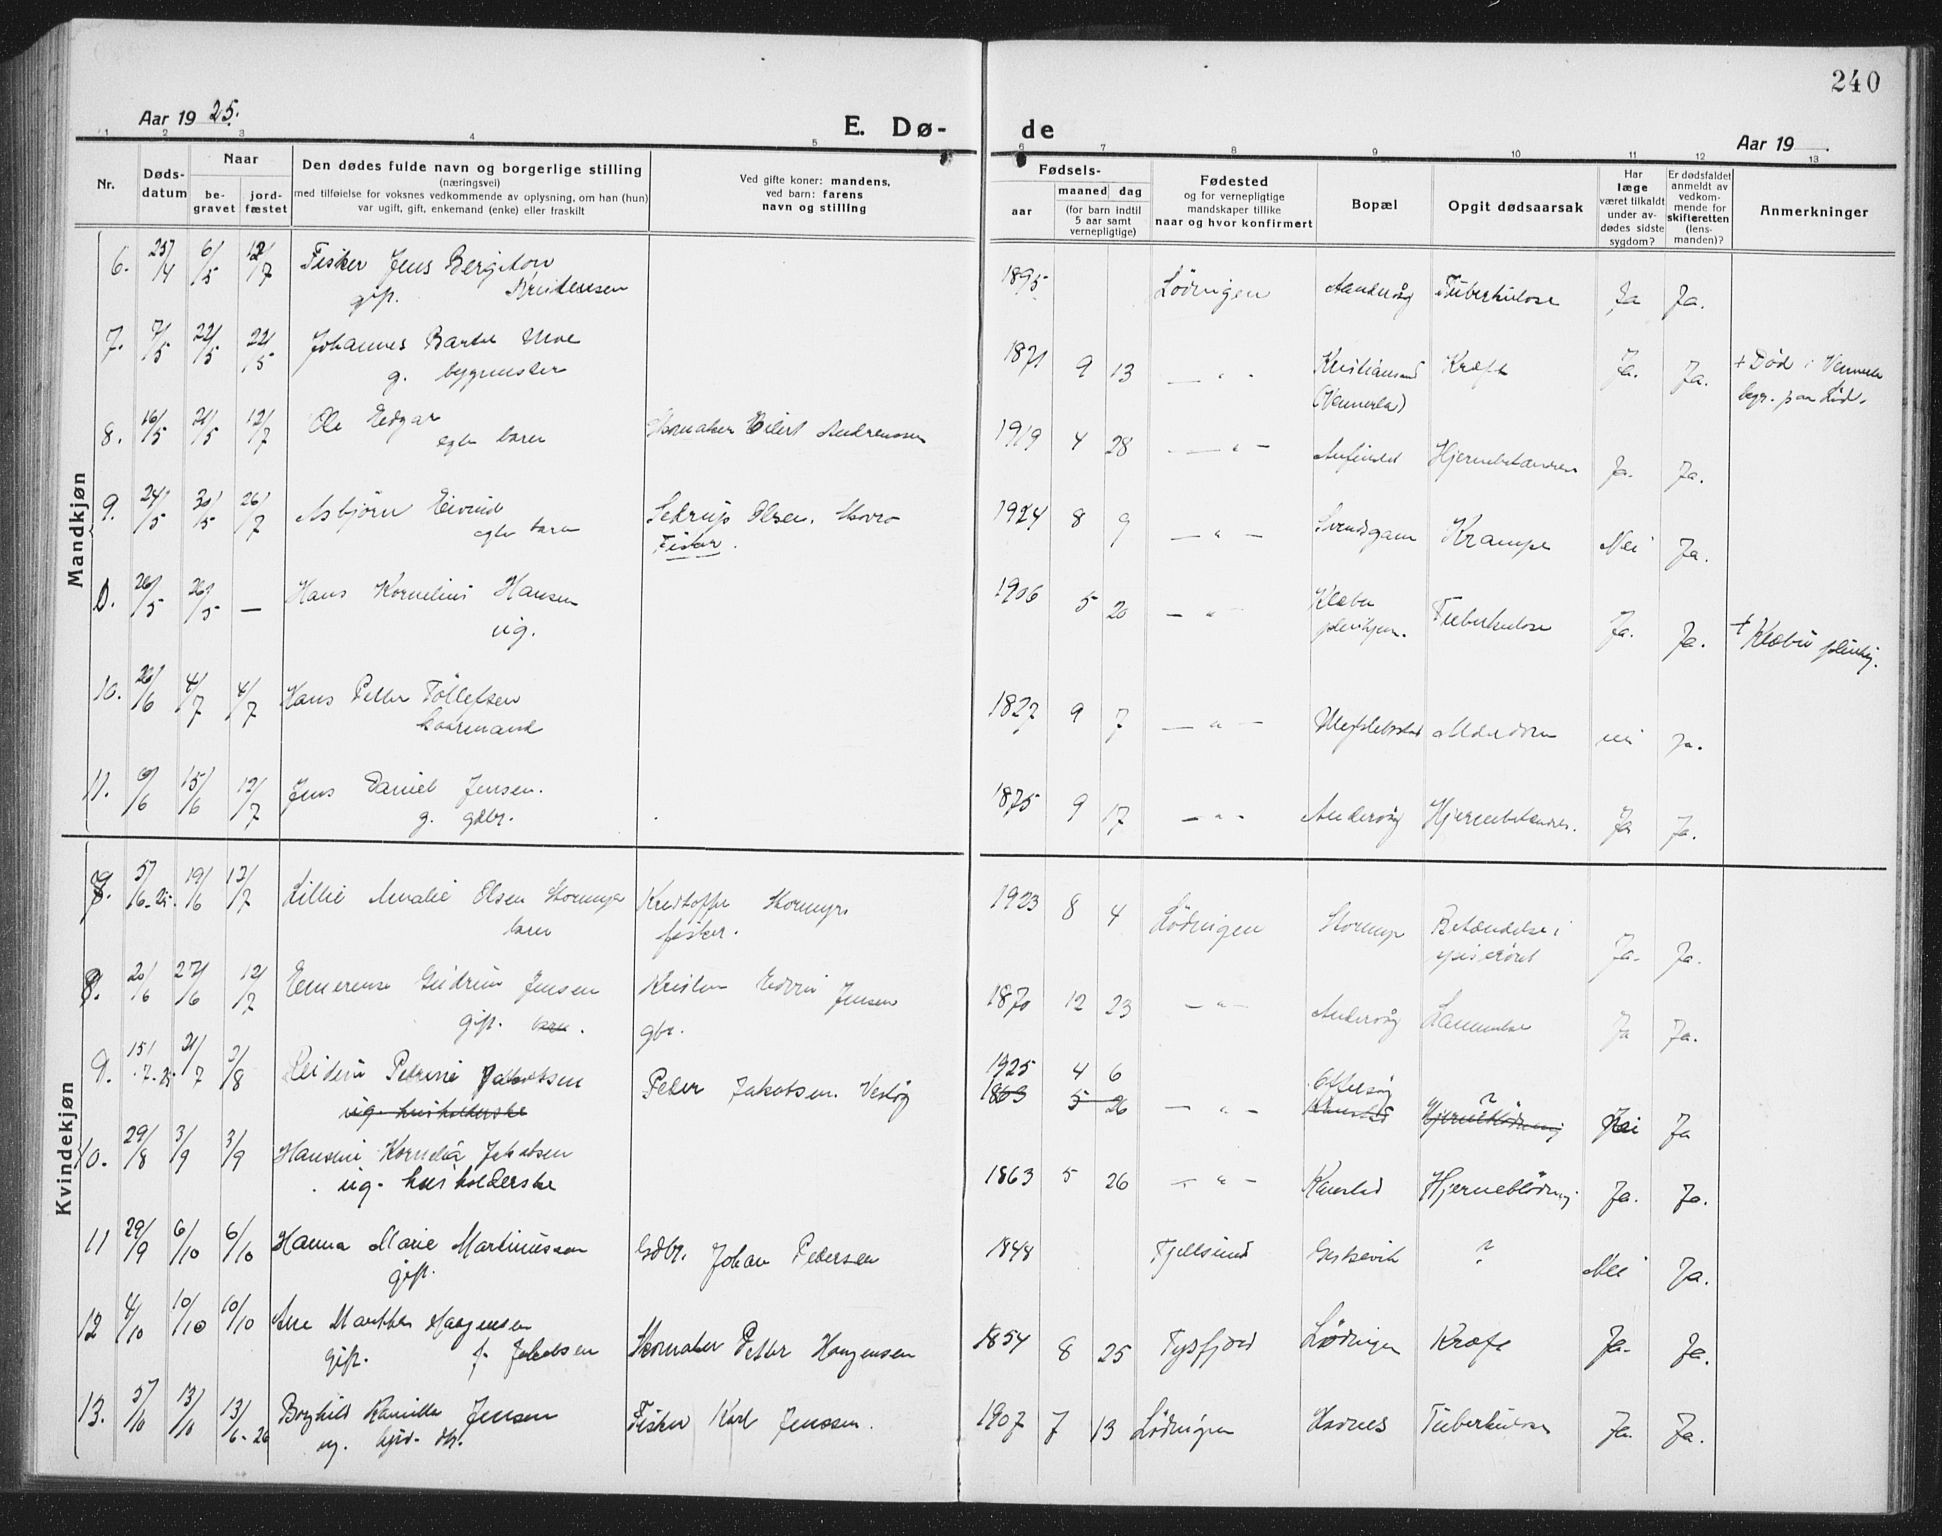 240
Aar 1925.
E. Dø-
de
Aar 19
1 2 3 4 5 6 7 8 9 10 11 12 13
Nr.
Døds-
datum
Naar
be-
gravet
jord-
fæstet
Den dødes fulde navn og borgerlige stilling
(næringsvei)
med tilføielse for voksnes vedkommende av oplysning, om han (hun)
var ugift, gift, enkemand (enke) eller fraskilt
Ved gifte koner: mandens,
ved barn: farens
navn og stilling
Fødsels-
aar
maaned dag
(for barn indtil
5 aar samt
vernepligtige)
Fødested
og for vernepligtige
mandskaper tillike
naar og hvor konfirmert
Bopæl
Opgit dødsaarsak
Har
læge
været tilkaldt
under av-
dødes sidste
sygdom?
Er dødsfaldet
anmeldt av
vedkom-
mende for
skifteretten
(lens-
manden)?
Anmerkninger
Mandkjøn
6. 25/4 6/5 12/7 Fisker Jens Bergiton 1895 Lødingen Tuberkulose Ja Ja.
gift.
7. 7/5 22/5 22/5 Johannes Moe 1871 9 13 — " - Kristiansand Kræft Ja. Ja. + Død i Vennesla
g. bygmester (Vennesla) begr. paa Lød.
8. 16/5 21/5 12/7 Ole Edgar Skomaker Eilert Andreassen 1919 4 28 — " — Hjernebetændelse Ja. Ja.
egte barn
9. 24/5 30/5 26/7 Asbjørn Eivind Sedrup Olsen. 1924 8 9 — " — Krampe Nei Ja.
egte barn Fisker.
0. 26/5 26/5 — Hans Kornelius Hansen 1906 5 20 — " — Klæbu Tuberkulose Ja. Ja. + Klæbu pleiehj.
ug. pleiehjem.
10. 26/6 4/7 4/7 Hans Petter Tollefsen 1827 9 7 — " — Alderdom nei Ja.
kaarmand
11. 6/6 15/6 12/7 Jens Daniel Jensen. 1875 9 17 — " - Hjernebetændes. Ja Ja.
g. gdbr.
Kvindekjøn
7. 5/6-25. 19/6 12/7 Lillie Amalie Olsen Kristoffer 1923 8 4 Lødingen Betændelse i
barn fisker. spiserøret Ja. Ja.
8. 20/6 27/6 12/7 Emerense Gudrun Jensen Kristen Edvin Jensen 1870 12 23 — " — Lammelse Ja Ja.
gift. barn. gbr.
9. 15/7-25 21/7 2/8 Reidun Petrine Jakobsen Peder Jakobsen. 1925 4 6
ug. husholderske 1863 5 26 — " — Kanstad ? Hjerneblødning Nei Ja
10. 29/8 3/9 3/9 Hansine Kornelia Jakobsen 1863 5 26 — " — Kanstad Hjerneblødning Ja. Ja.
ug. husholderske
11 29/9 6/10 6/10 Hanna Marie Martinussen Gdbr. Johan Pedersen 1848 Tjellsund ? Nei Ja.
gift.
12 4/10 10/10 10/10 Ane Marthe Haagensen Skomaker Petter Haagensen 1854 8 25 Tysfjord Lødingen Kræft Ja. Ja.
gift. f. Jakobsen
13. 5/10 13/10 13/6-26 Borghild Kamilla Jensen Fisker Karl Jenssen. 1907 7 13 Lødingen Tuberkulose Ja. Ja.
ug.